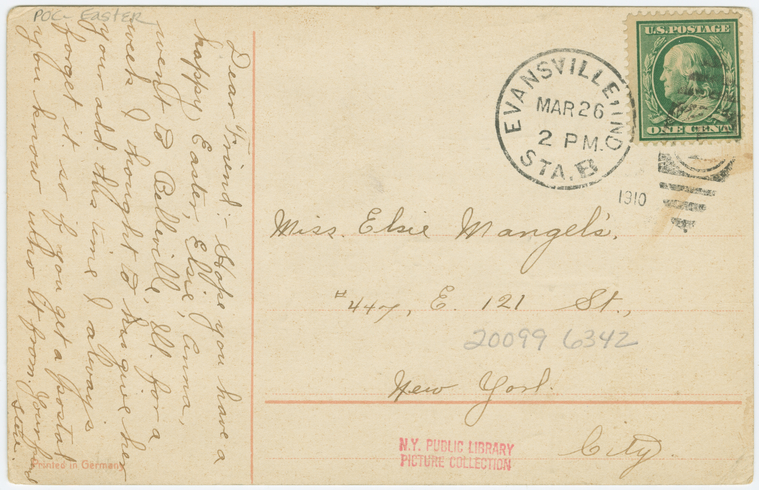 POC- Easter
Dear Friend:- Hope you have a
happy Easter, Elsie, Anna,
went to Belleville, Ill. for a
week I thought to have give her
your add. this time I always
forget it. so if you get a postal
you know who it from. Your
Printed in Germany
U.S. POSTAGE
ONE CENT
EVANSVILLE, IND
MAR 26
2 PM.
STA. B
1910
Miss. Elsie Mangels.
#447, E. 121 St.,
20099 6342
New York.
City.
N.Y. PUBLIC LIBRARY
PICTURE COLLECTION